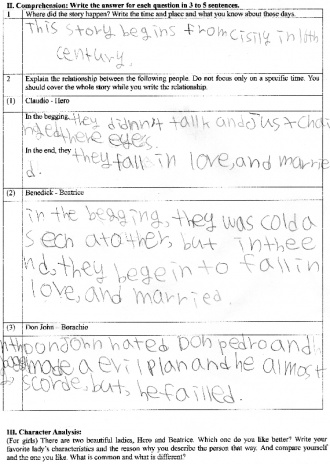 II. Comprehension: Write the answer for each question in 3 to 5 sentences.
1 Where did the story happen? Write the time and place and what you know about those days.
This story begins from cisily in 16th
century.
2 Explain the relationship between the following people. Do not focus only on a specific time. You
should cover the whole story while you write the relationship.
(1) Claudio - Hero
In the begging, they didn't tallk and Just chai
nged there eyes.
In the end, they they fall in love, and marrie
d.
(2) Benedick - Beatrice
in the begging, they was cold a
s ech atother, but in thee
nd, they bege in to fall in
love, and married.
(3) Don John - Borachio
Don John hated Don pedro and
made a evil plan and he almost
scorde, but, he failled.
III. Character Analysis:
(For girls) There are two beautiful ladies, Hero and Beatrice. Which one do you like better? Write your
favorite lady's characteristics and the reason why you describe the person that way. And compare yourself
and the one you like. What is common and what is different?